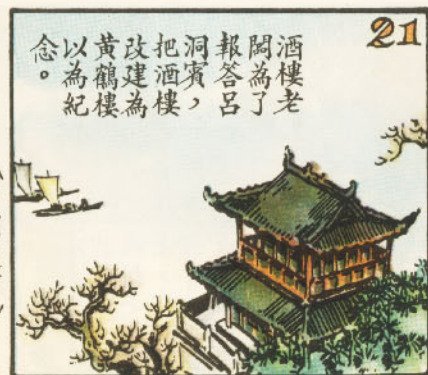 21
酒樓老
闆為了
報答呂
洞賓，
把酒樓
改建為
黃鶴樓
以為紀
念。